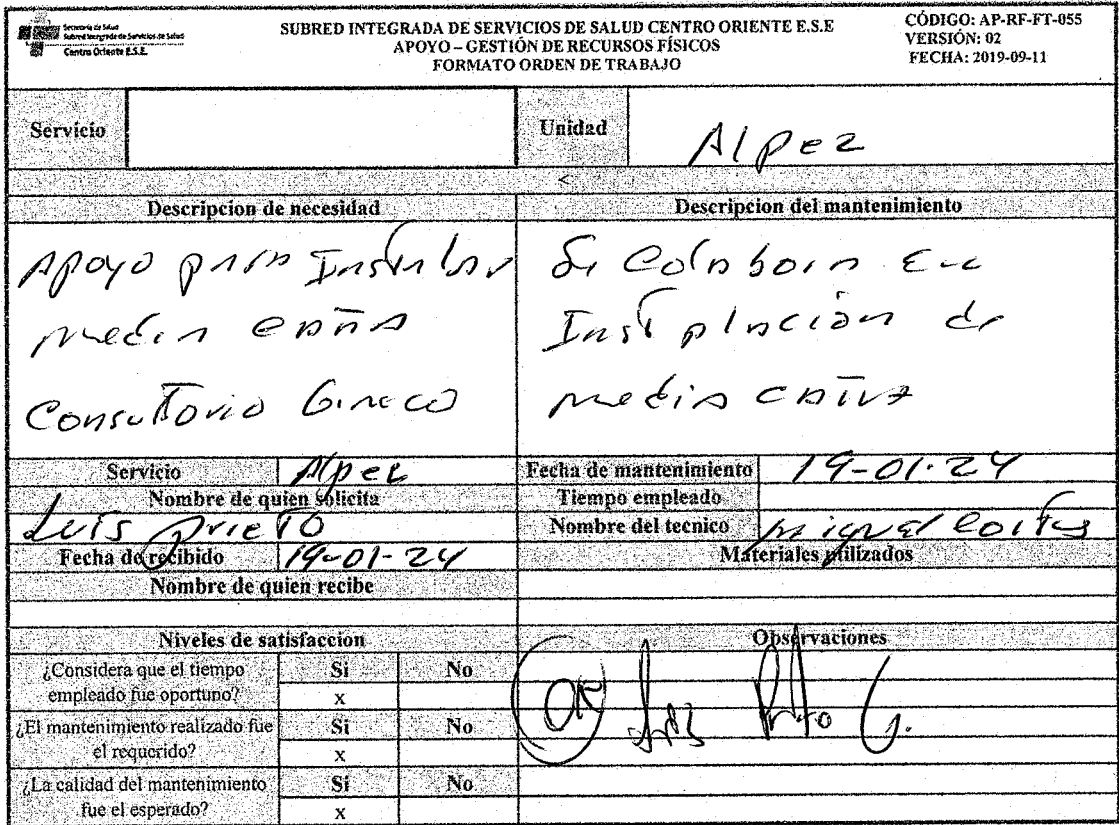 Secretaría de Salud
Subred Integrada de Servicios de Salud
Centro Oriente E.S.E.
SUBRED INTEGRADA DE SERVICIOS DE SALUD CENTRO ORIENTE E.S.E
APOYO – GESTIÓN DE RECURSOS FÍSICOS
FORMATO ORDEN DE TRABAJO
CÓDIGO: AP-RF-FT-055
VERSIÓN: 02
FECHA: 2019-09-11
Servicio
Unidad Alpez
Descripcion de necesidad
Apoyo para Instalar
media caña
Consultorio Gineco
Descripcion del mantenimiento
Se Colabora en
Instalacion de
media caña
Servicio Alpez
Nombre de quien solicita
Luis prieto
Fecha de recibido 19-01-24
Nombre de quien recibe
Fecha de mantenimiento 19-01-24
Tiempo empleado
Nombre del tecnico miguel cortes
Materiales utilizados
Niveles de satisfaccion
¿Considera que el tiempo
empleado fue oportuno?
Si No
x
¿El mantenimiento realizado fue
el requerido?
Si No
x
¿La calidad del mantenimiento
fue el esperado?
Si No
x
Observaciones
OK Luis Prieto G.